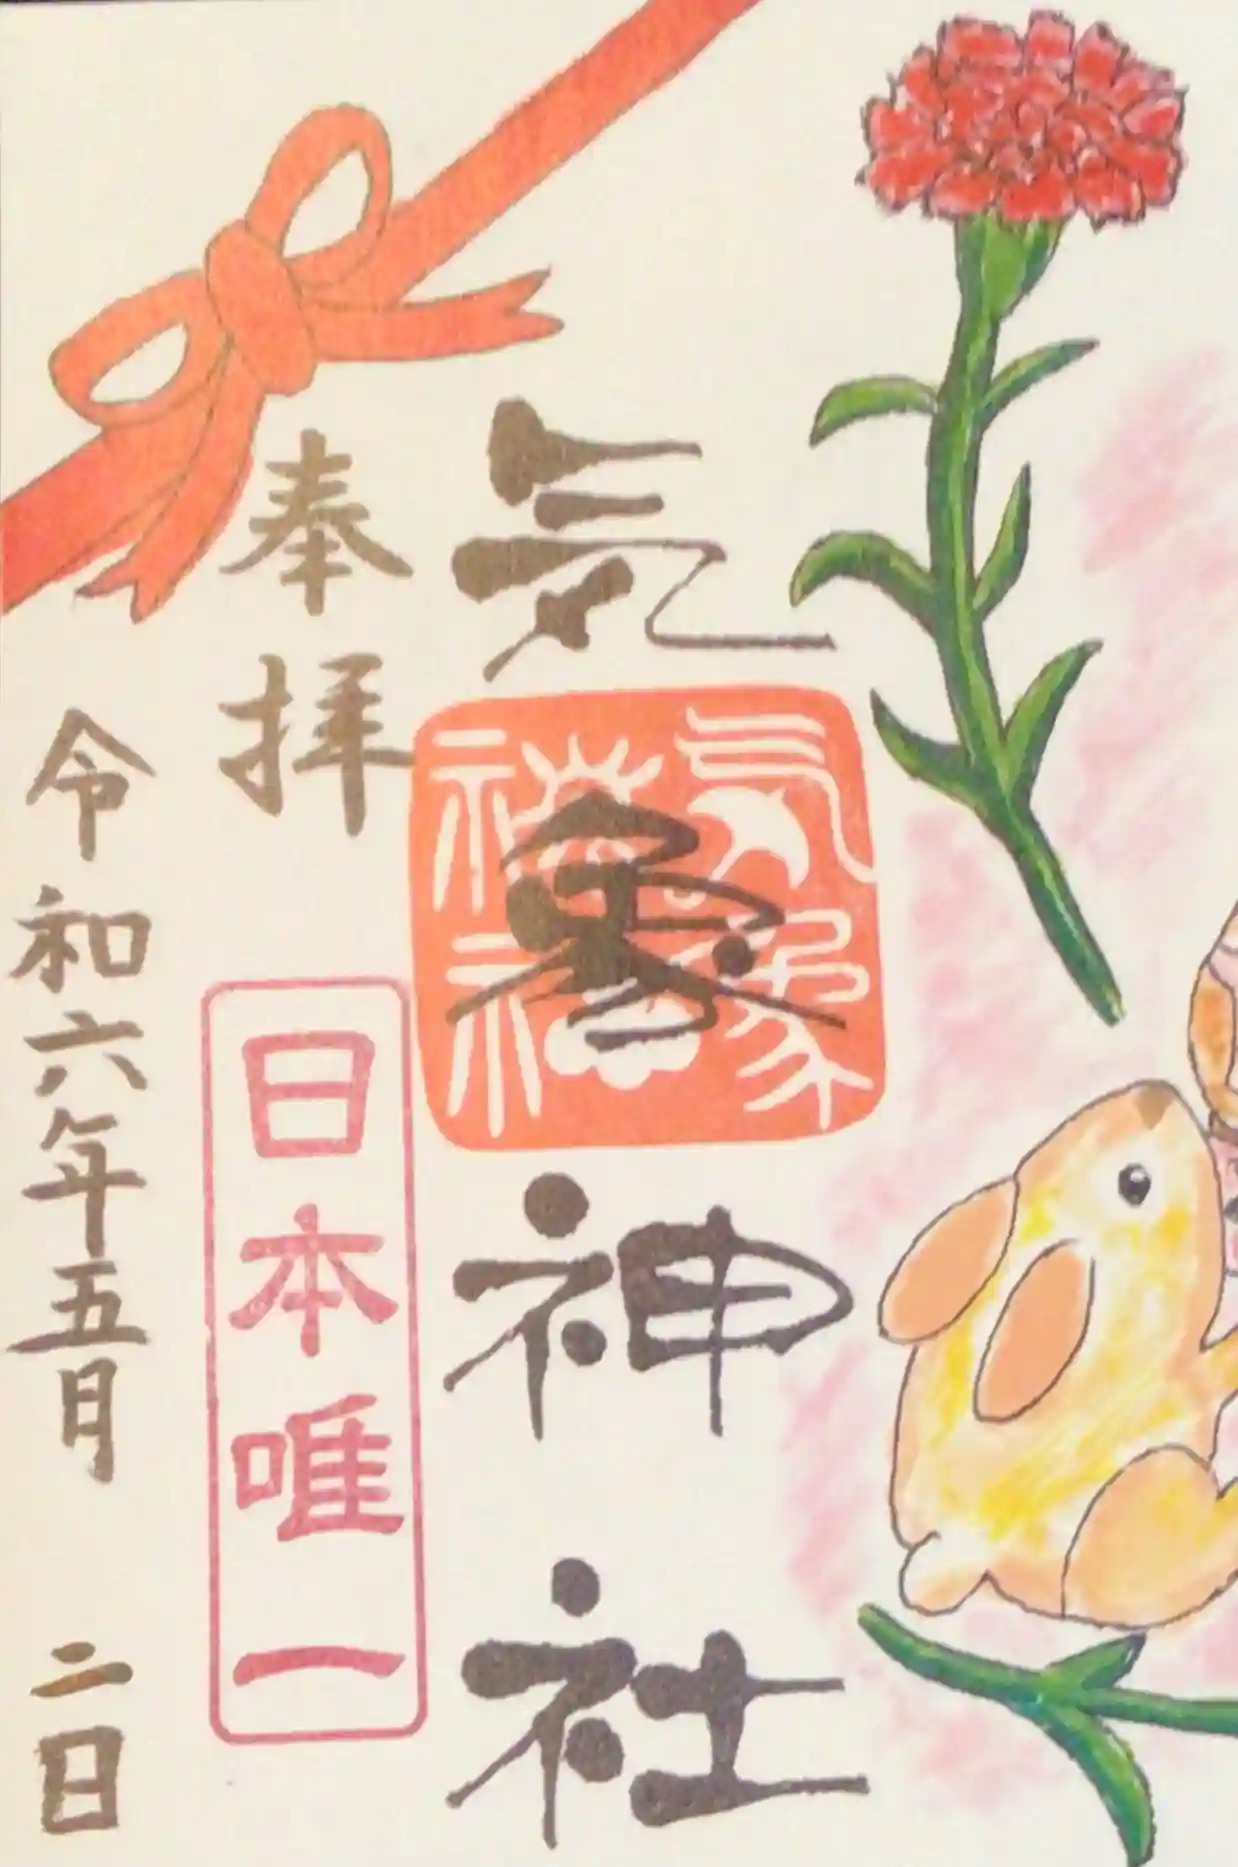 気象神社
氣象神社
奉拝
日本唯一
令和六年五月 二日